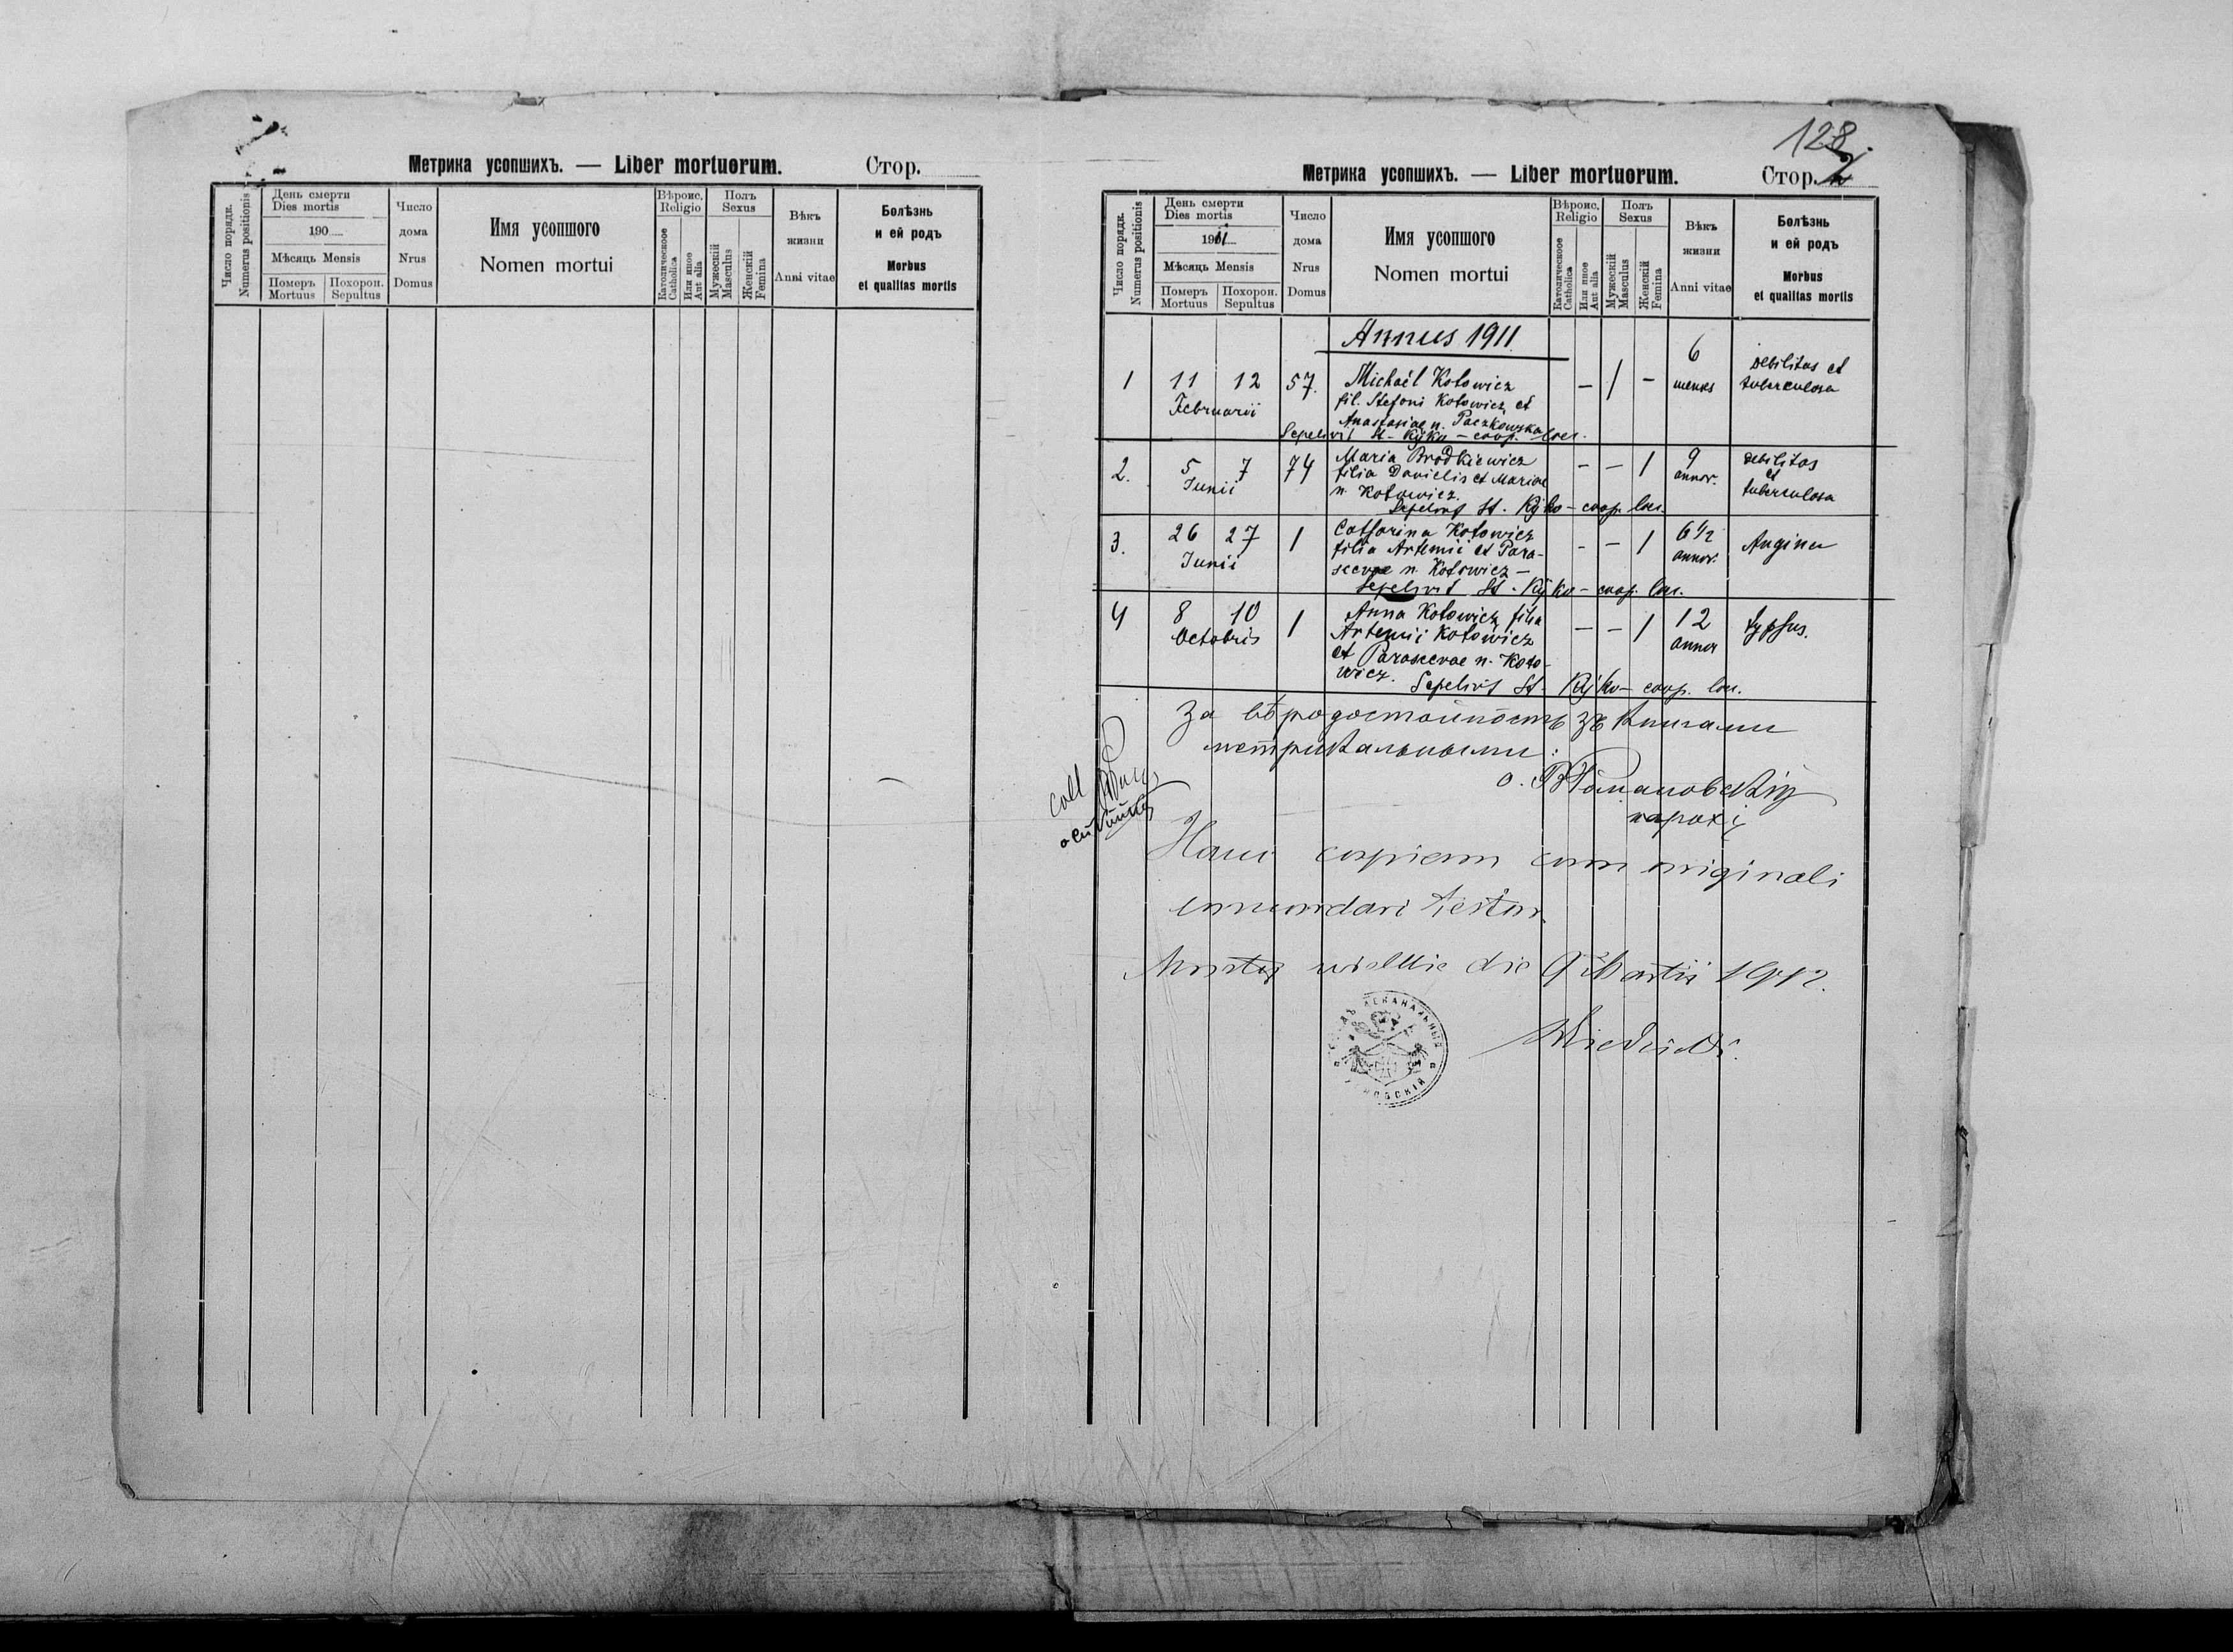 Метрика усопшихъ. — Liber mortuorum. Стор.
Число порядк.
Numerus positionis
День смерти
Dies mortis
190
Мѣсяць Mensis
Померъ
Mortuus
Похорон.
Sepultus
Число
дома
Nrus
Domus
Имя усопшого
Nomen mortui
Вѣроис.
Religio
Католическоое
Catholica
Или иное
Aut alia
Полъ
Sexus
Мужескій
Masculus
Женскій
Femina
Вѣкъ
жизни
Anni vitae
Болѣзнь
и ей родъ
Morbus
et qualitas mortis
128
Метрика усопшихъ. — Liber mortuorum. Стор. 2
Число порядк.
Numerus positionis
День смерти
Dies mortis
1911
Мѣсяць Mensis
Померъ
Mortuus
Похорон.
Sepultus
Число
дома
Nrus
Domus
Имя усопшого
Nomen mortui
Вѣроис.
Religio
Католическоое
Catholica
Или иное
Aut alia
Полъ
Sexus
Мужескій
Masculus
Женскій
Femina
Вѣкъ
жизни
Anni vitae
Болѣзнь
и ей родъ
Morbus
et qualitas mortis
Annus 1911
1 11 12 57. Michaël Kotowicz - / - 6 debilitas et
Februarii fil. Stefani Kotowicz et menses tuberculosa
Anastasiae n. Paczkowska
Sepelivit St. Kyjko - coop. loci.
2. 5 7 74 Maria Brodkiewicz - - / 9 debilitas
Junii filia Danielis et Mariae annor. et
n. Kotowicz. tuberculosa
Sepelivit St. Kyjko - coop. loci.
3. 26 27 1 Catharina Kotowicz - - / 6 1/2 Angina
Junii filia Artemii et Para- annor.
scevae n. Kotowicz -
Sepelivit St. Kyjko - coop. loci.
4 8 10 1 Anna Kotowicz filia - - / 12 typhus.
Octobris Artemii Kotowicz annor
et Parascevae n. Koto-
wicz. Sepelivit St. Kyjko - coop. loci.
За вѣродостойность зъ книгами
метрикальными:
о. Романовскій
парох
coll
Hanc copiam cum originali
concordari testor.
Mosty wielkie die 9 Martii 1912.
ДЕКАНАЛЬНЫЙ